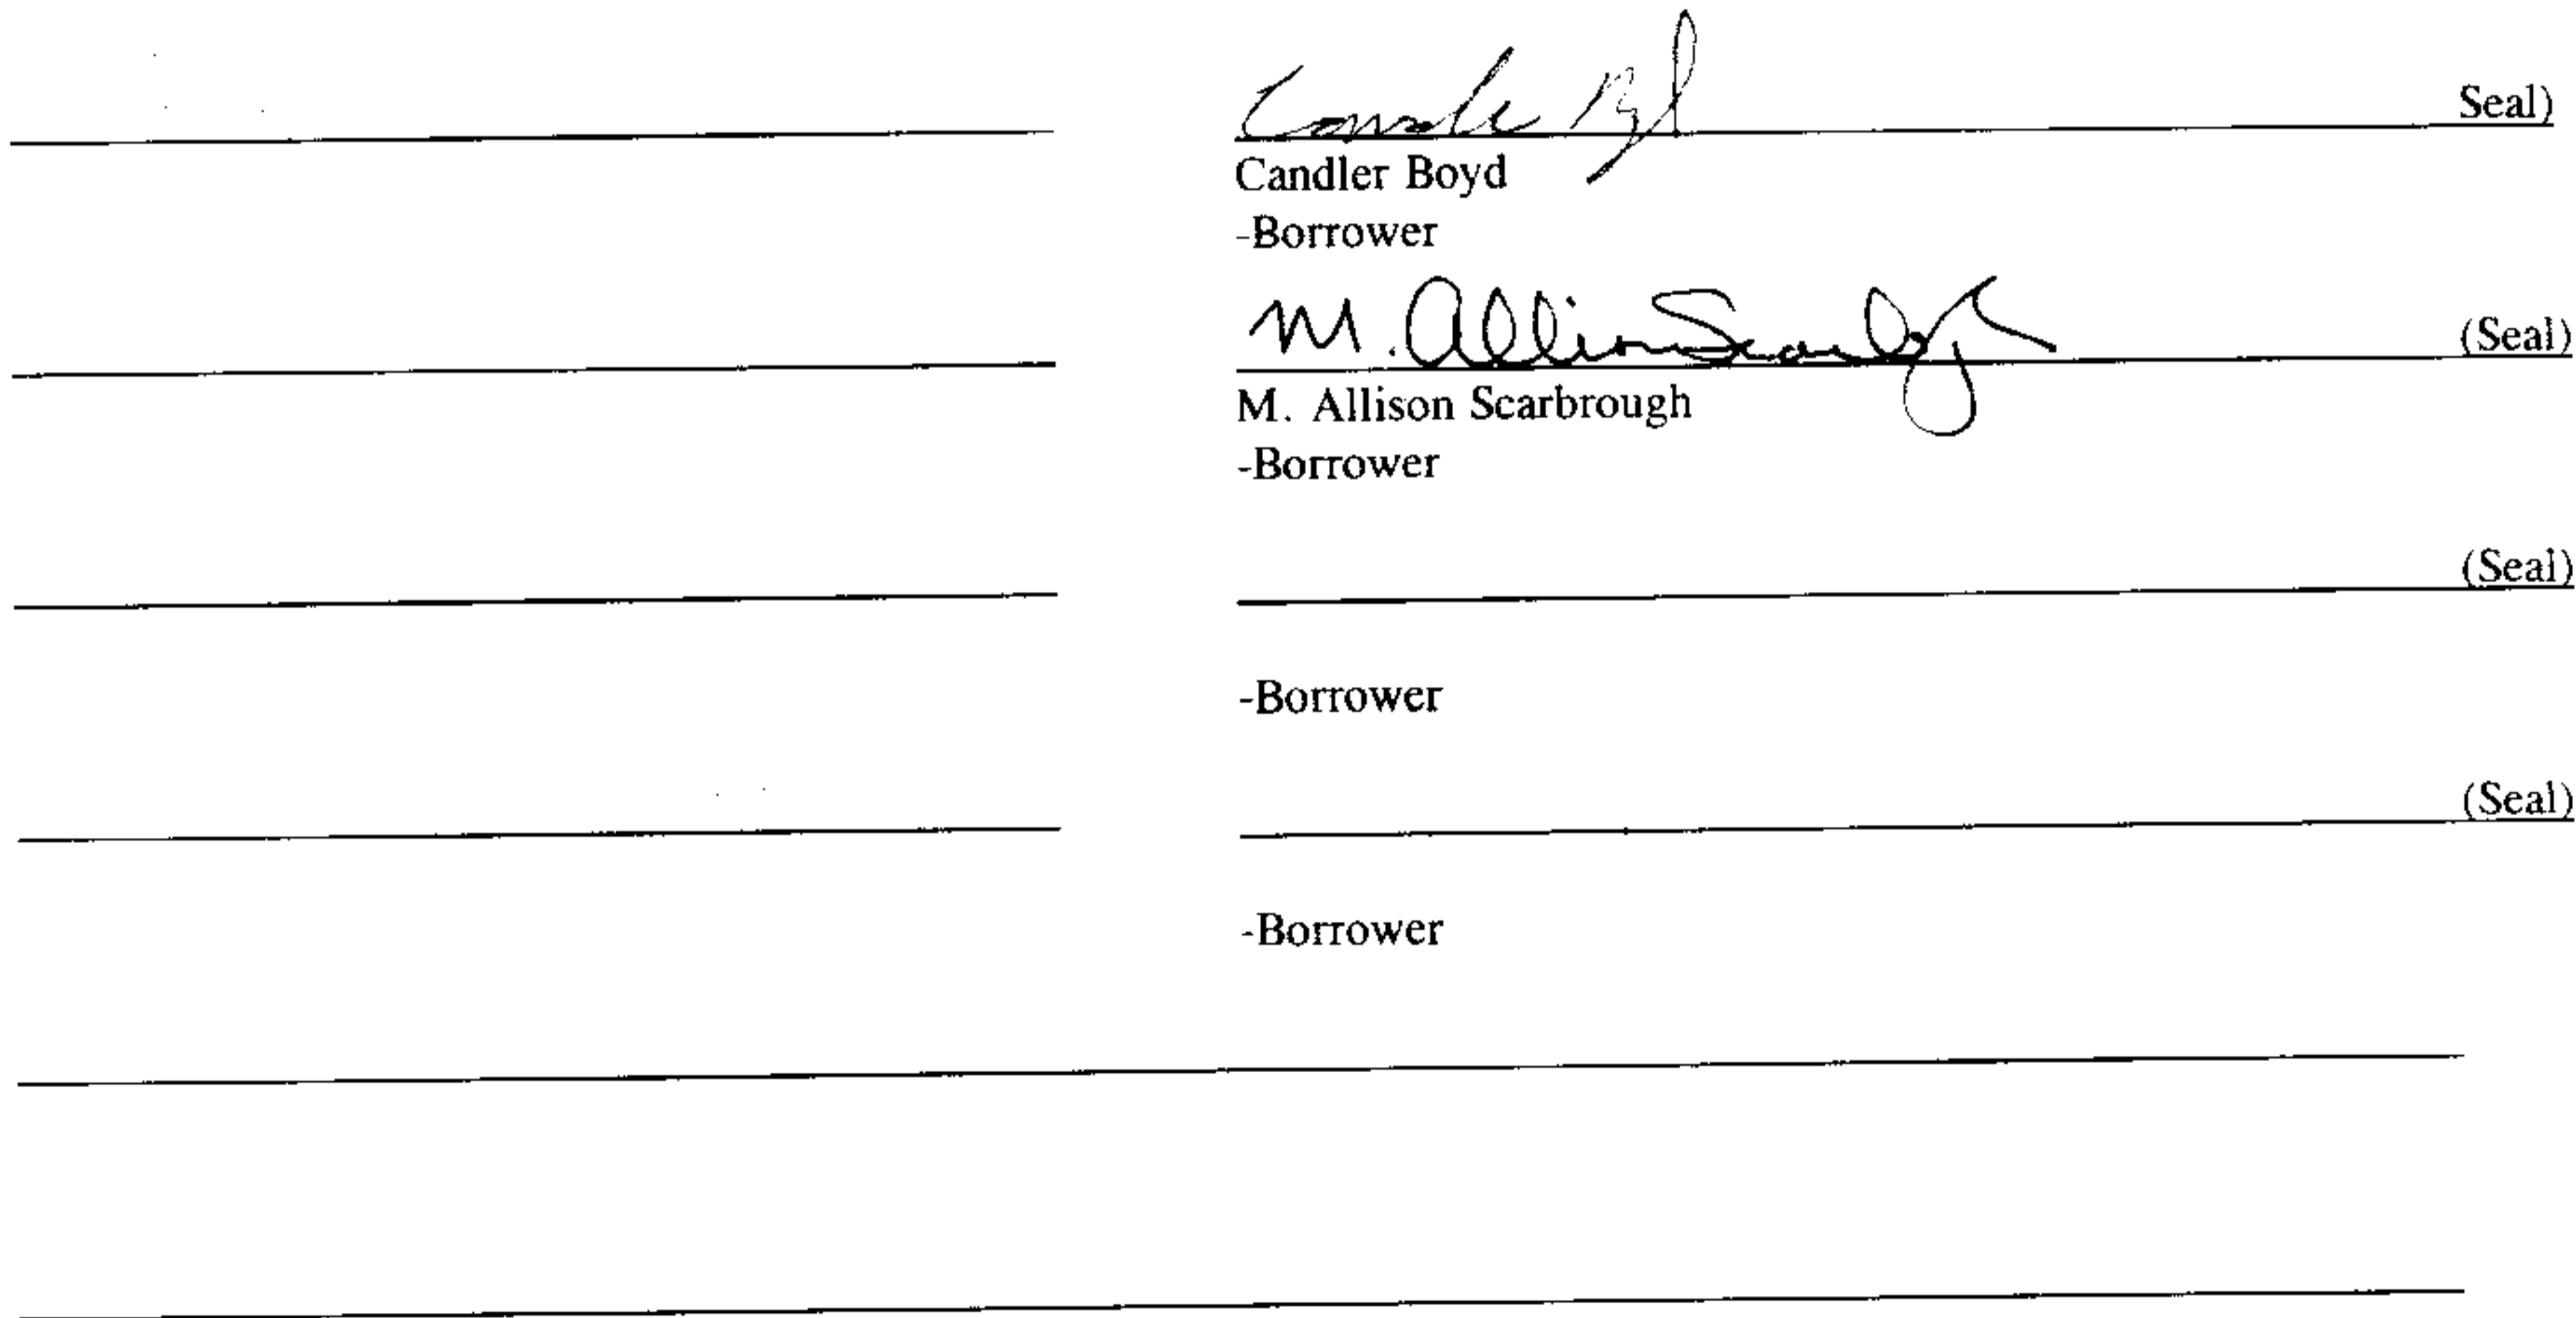 Candler Boyd Seal)
Candler Boyd
-Borrower
M. Allison Scarbrough (Seal)
M. Allison Scarbrough
-Borrower
(Seal)
-Borrower
(Seal)
-Borrower